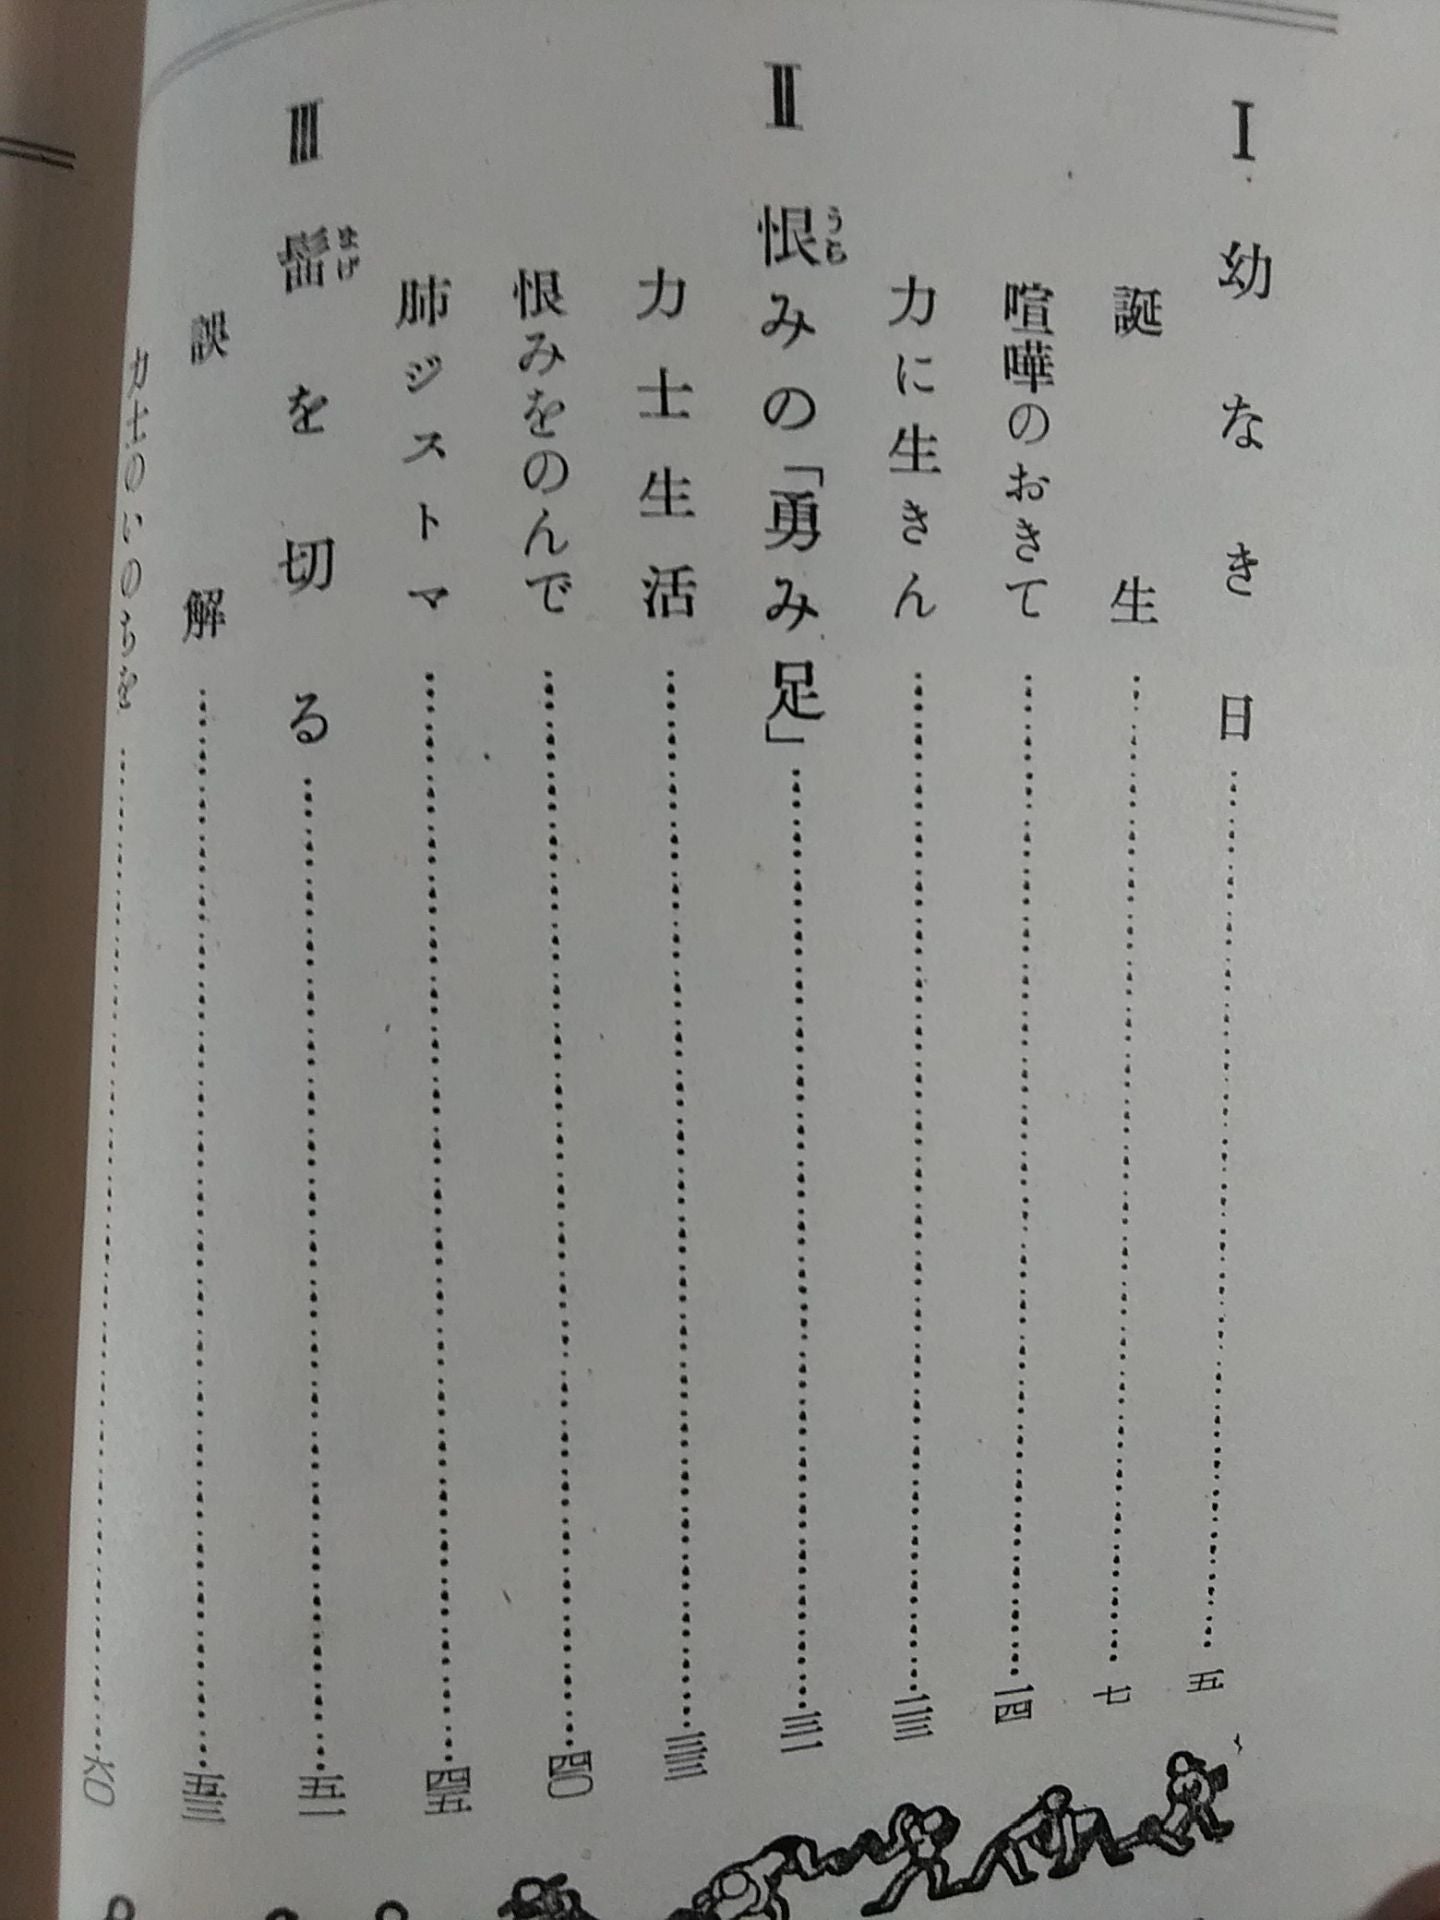 Ⅰ 幼なき日……五
誕生……七
喧嘩のおきて……一四
力に生きん……二三
Ⅱ 恨みの「勇み足」……三一
うら
力士生活……三三
恨みをのんで……四〇
肺ジストマ……四五
Ⅲ 髷を切る……五一
まげ
誤解……五三
力士のいのちを……六〇